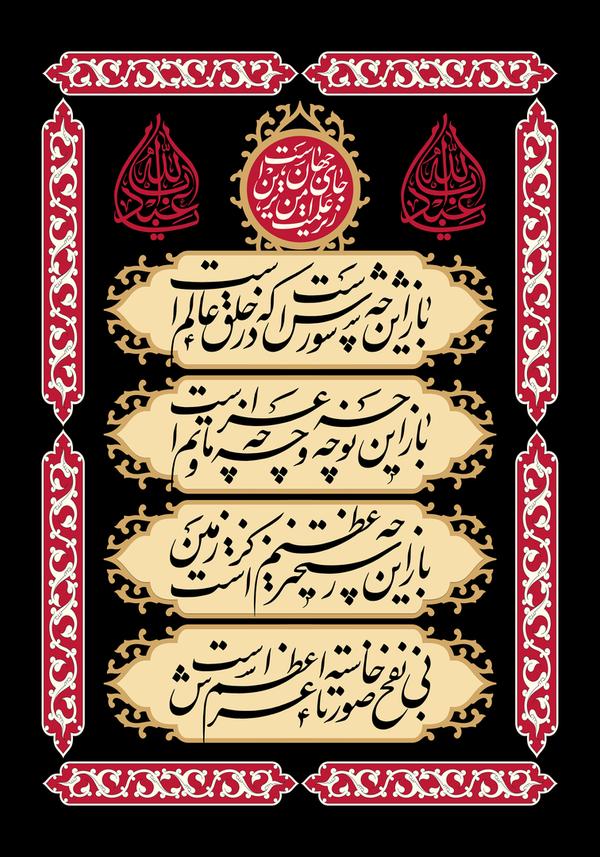 اباعبدالله
زیر علمت امن ترین جای جهان است
اباعبدالله
باز این چه شورش است که در خلق عالم است
باز این چه نوحه و چه عزا و چه ماتم است
باز این چه رستخیز عظیم است کز زمین
بی نفخ صور خاسته تا عرش اعظم است